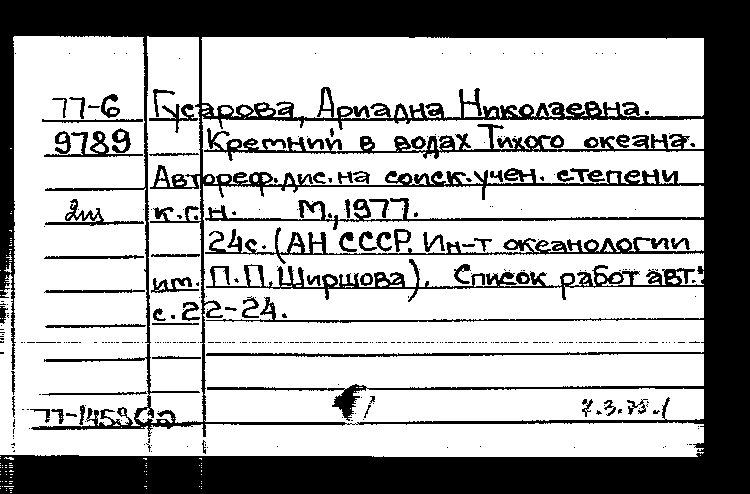 77-6 Гусарова, Ариадна Николаевна.
9789 Кремний в водах Тихого океана.
Автореф.дис.на соиск.учен. степени
2из к.г.н. М.,1977.
24с. (АН СССР. Ин-т океанологии
им. П.П.Ширшова). Список работ авт.:
с.22-24.